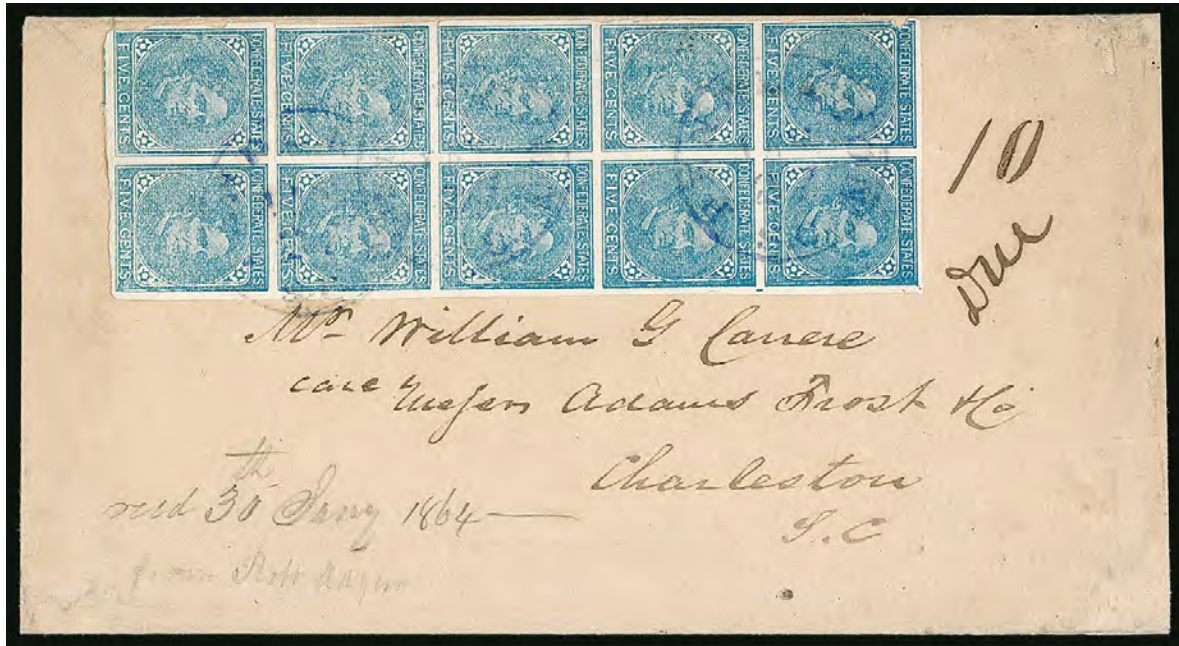 CONFEDERATE STATES FIVE CENTS
CONFEDERATE STATES FIVE CENTS
CONFEDERATE STATES FIVE CENTS
CONFEDERATE STATES FIVE CENTS
CONFEDERATE STATES FIVE CENTS
CONFEDERATE STATES FIVE CENTS
CONFEDERATE STATES FIVE CENTS
CONFEDERATE STATES FIVE CENTS
CONFEDERATE STATES FIVE CENTS
CONFEDERATE STATES FIVE CENTS
Due 10
Mr William G Carrere
care Messrs Adams Frost & Co
Charleston
S.C
recd 30th Jany 1864
from Robt